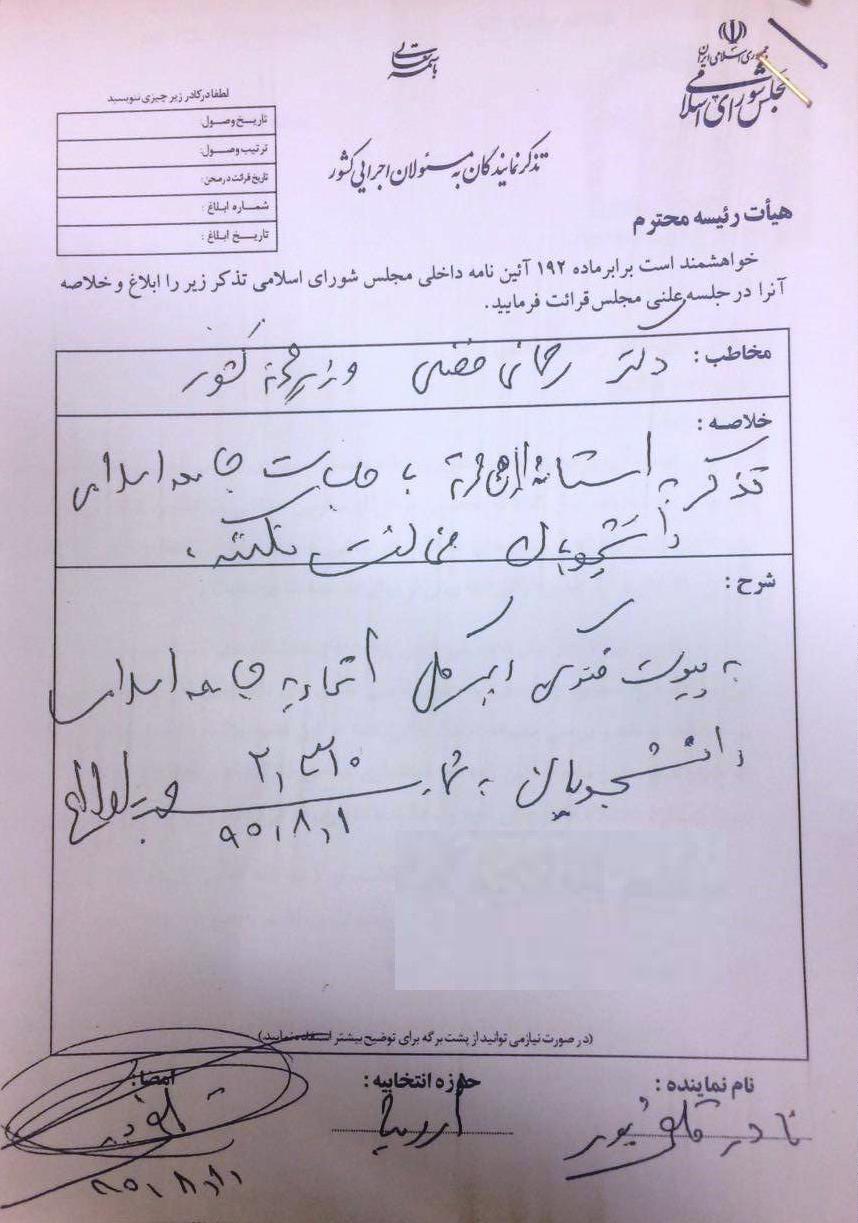 جمهوری اسلامی ایران
مجلس شورای اسلامی
باسمه تعالی
لطفا در کادر زیر چیزی ننویسید
تاریخ وصول:
ترتیب وصول:
تاریخ قرائت در صحن:
شماره ابلاغ :
تاریخ ابلاغ :
تذکر نمایندگان به مسئولان اجرایی کشور
هیأت رئیسه محترم
خواهشمند است برابر ماده ۱۹۲ آئین نامه داخلی مجلس شورای اسلامی تذکر زیر را ابلاغ و خلاصه
آنرا در جلسه علنی مجلس قرائت فرمایید.
مخاطب : دکتر رحمانی فضلی وزیر محترم کشور
خلاصه :
تذکر به استاندار محترم با جلسات جامعه اسلامی
دانشجویان مخالفت نکنند.
شرح :
به پیوست دبیر کل اتحادیه جامعه اسلامی
دانشجویان به شماره
۹۵،۸،۱
(در صورت نیاز می توانید از پشت برگه برای توضیح بیشتر استفاده نمایید)
نام نماینده : نادر قاضی پور
حوزه انتخابیه : ارومیه
امضا :